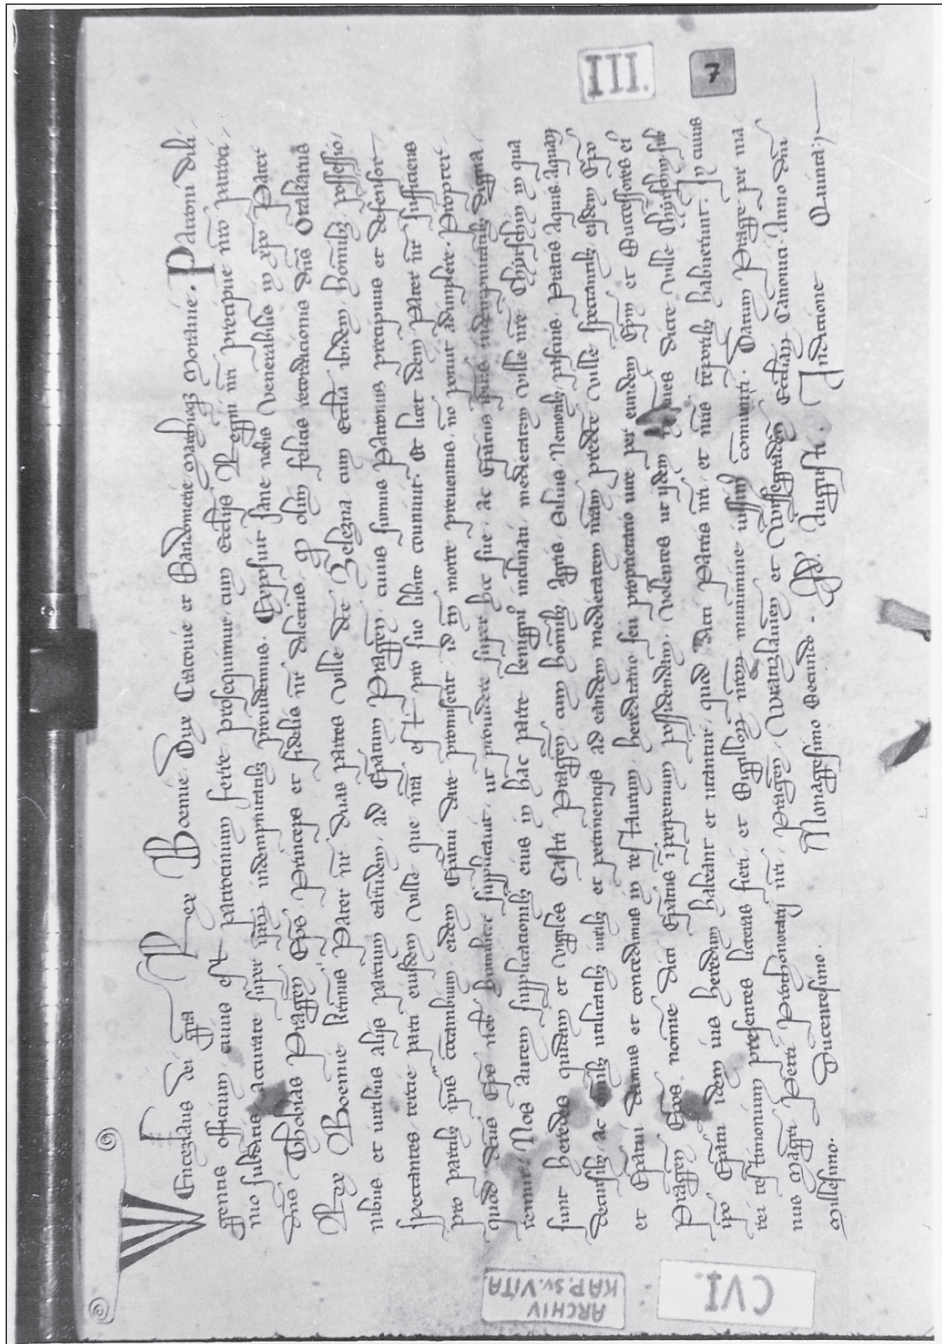 Wenceslaus dei gra Rex Boemie, Dux Cracovie et Sandomerie marchioq Moravie. Patroni dili
gentis officium, cuius est patrocinium ferre prosequimur, cum Ecclijs Regni nri precipue nro patroci
nio accurate super indempnitatib providemus. Exposuit sane nobis Venerabilis in xpo Pater
dns Thobias Pragen Eps, Princeps et fidelis nr dilectus, q olim felicis recordationis dns Otakarus
Rex Boemie Pater nr duas partes ville dce Zelezna cum Ecclia ibidem, hominib, possessio
nibus et iuribus alijs partium earundem, ad Epatum Pragen, cuius sumus Patronus precipuus et defensor
spectantes, tercie parti eiusdem ville que nra est pro suo libito couniuit. Et licet idem Pater nr sufficiens
pro partib ipis concambium, eidem Epatui dare promiserit id tn morte preventus, no potuit adimplere. Propter
quod dictus Eps nob humiliter supplicavit, ut providere super hoc sue, ac Epatus indempnitatib
Nos autem supplicationib eius in hac parte benigni inclinati, medietatem ville nre in qua
sunt heredes quidam et vigiles Castri Pragen, cum hominib, Agris, Silvis, Nemorib, pascuis, Pratis Aquis
decursib, ac omib utilitatib et pertinencijs ad eandem medietatem nram predce ville spectantib, eidem Epo
et Epatui damus et concedimus in restaurum, hereditario seu proprietatis iure per eundem Epm et Successores ei
Pragen Epos, nomine dicti Epatus perpetuum possidendam, volentes ut ijdem dicte ville
ipo Epatui idem ius heredum habeant et utantur, quod dicti Patris nri, et nris temporib habuerunt. In cuius
rei testimonium presentes litteras fieri, et Sigilloq nroq munimine iussim comuniri. Datum Prage per ma
nus Magri Petri Prothonotarij nri, Pragen, Wratizlavien et Wissegraden Eccliaq Canonici. Anno dni
Millesimo. Ducentesimo. Nonagesimo Secundo. Augusti. Indictione Quinta.
III.
7
ARCHIV
KAP. SV. VITA
CVI.